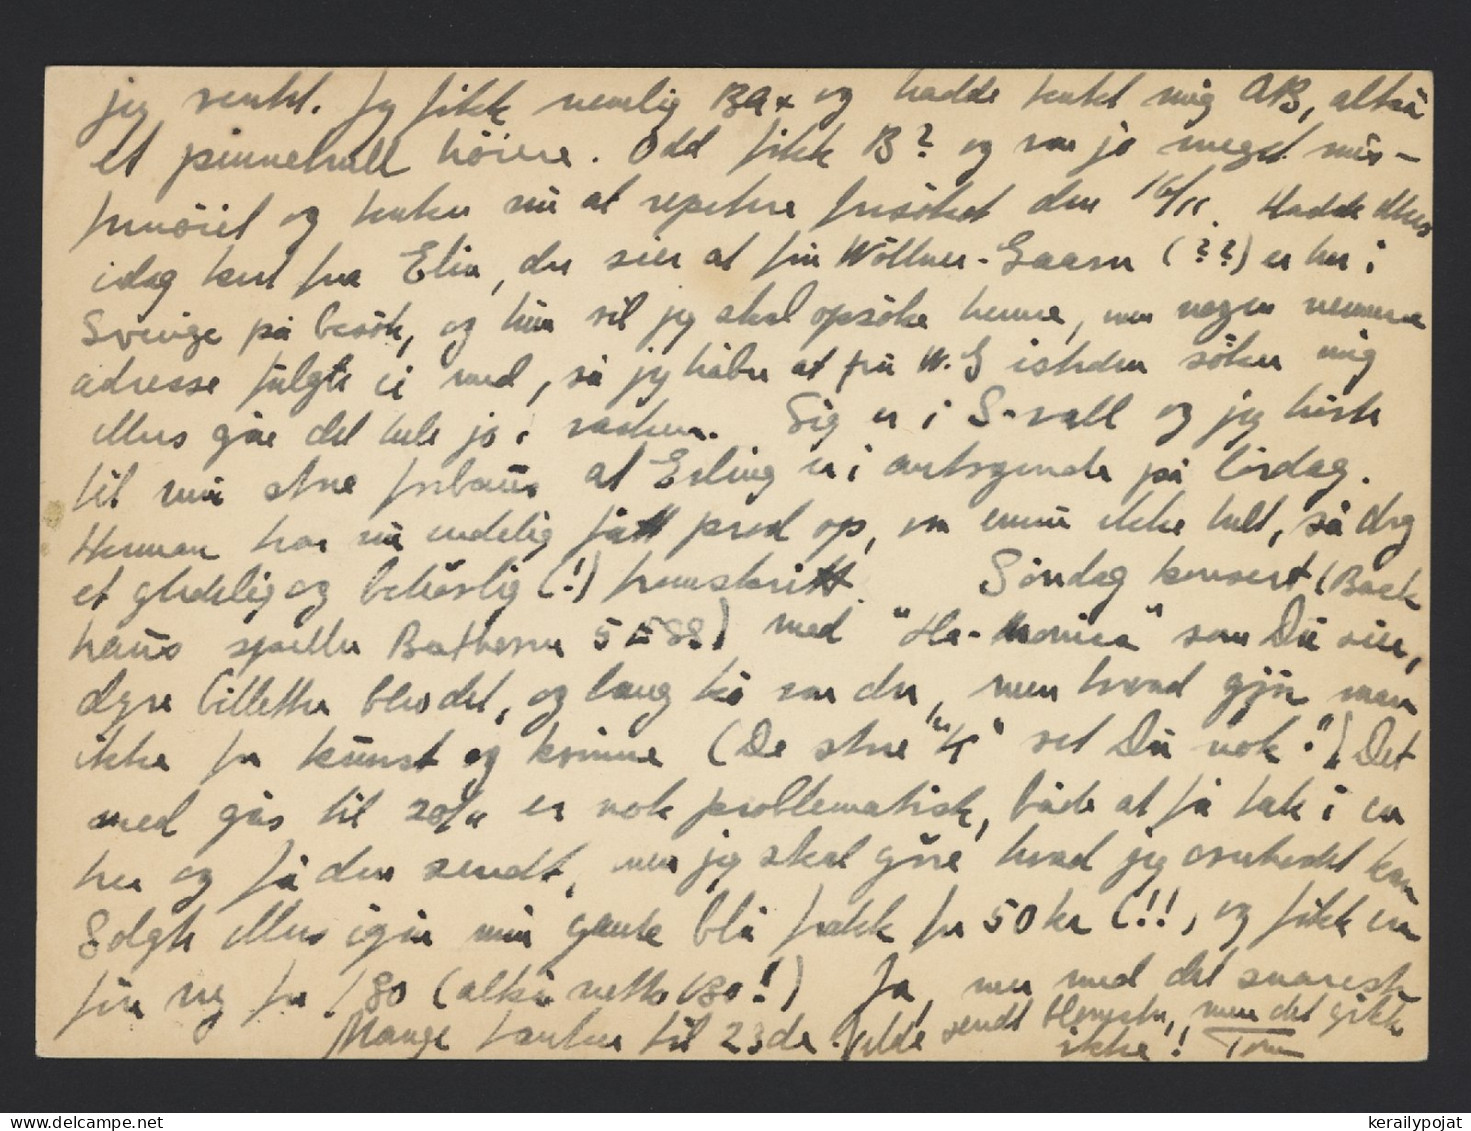 jeg ventet. Jeg fikk nemlig Bax og hadde tenkt mig AB, altså
et pinnehull höiere. Odd fikk B? og var jo meget mis-
fornöiet og tenker nu at repetere forsöket den 16/11. Hadde
idag kort fra Elin, der sier at fru Wöllner-Gaarn (??) er her i
Sverige på besök, og hun vil jeg skal opsöke henne, men nogen nermere
adresse fulgte ei med, så jeg håber at fru W.G isteden söker mig
ellers går det hele jo i vasken. Sig er i S-vall og jeg hörte
til min store forbaus at Erling er i antogende på lördag.
Herman har nu endelig fått prod op, om ennu ikke helt, så dog
et gledelig og behörlig (!) fremskritt. Söndag konsert (Back
haus spiller Bethoven 5 ESS!) med "Ha-Monica" som Du vil,
dyre billetter blev det, og lang kö var der, men hvad gjör man
ikke for kunst og kvinne (De store "K" vet Du nok!) Det
med gås til 20/11 er nok problematisk, både at få tak i en
her og få den sendt, men jeg skal göre hvad jeg overhodet kan
Solgte ellers igår min gamle blå frakk for 50 kr (!!, og fikk en
fin ny for 180 (altså netto 130!) Ja, men med det snareste
Mange tanker til 23de. Vilde sendt blomster, men det gikk
ikke! Tom
kerailypojat